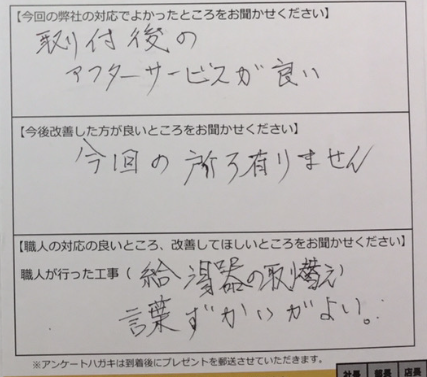 【今回の弊社の対応でよかったところをお聞かせください】
取付後の
アフターサービスが良い
【今後改善した方が良いところをお聞かせください】
今回の所ろ有りません
【職人の対応の良いところ、改善してほしいところをお聞かせください】
職人が行った工事（給湯器の取替え）
言葉ずかいがよい。
※アンケートハガキは到着後にプレゼントを郵送させていただきます。
社長 部長 店長